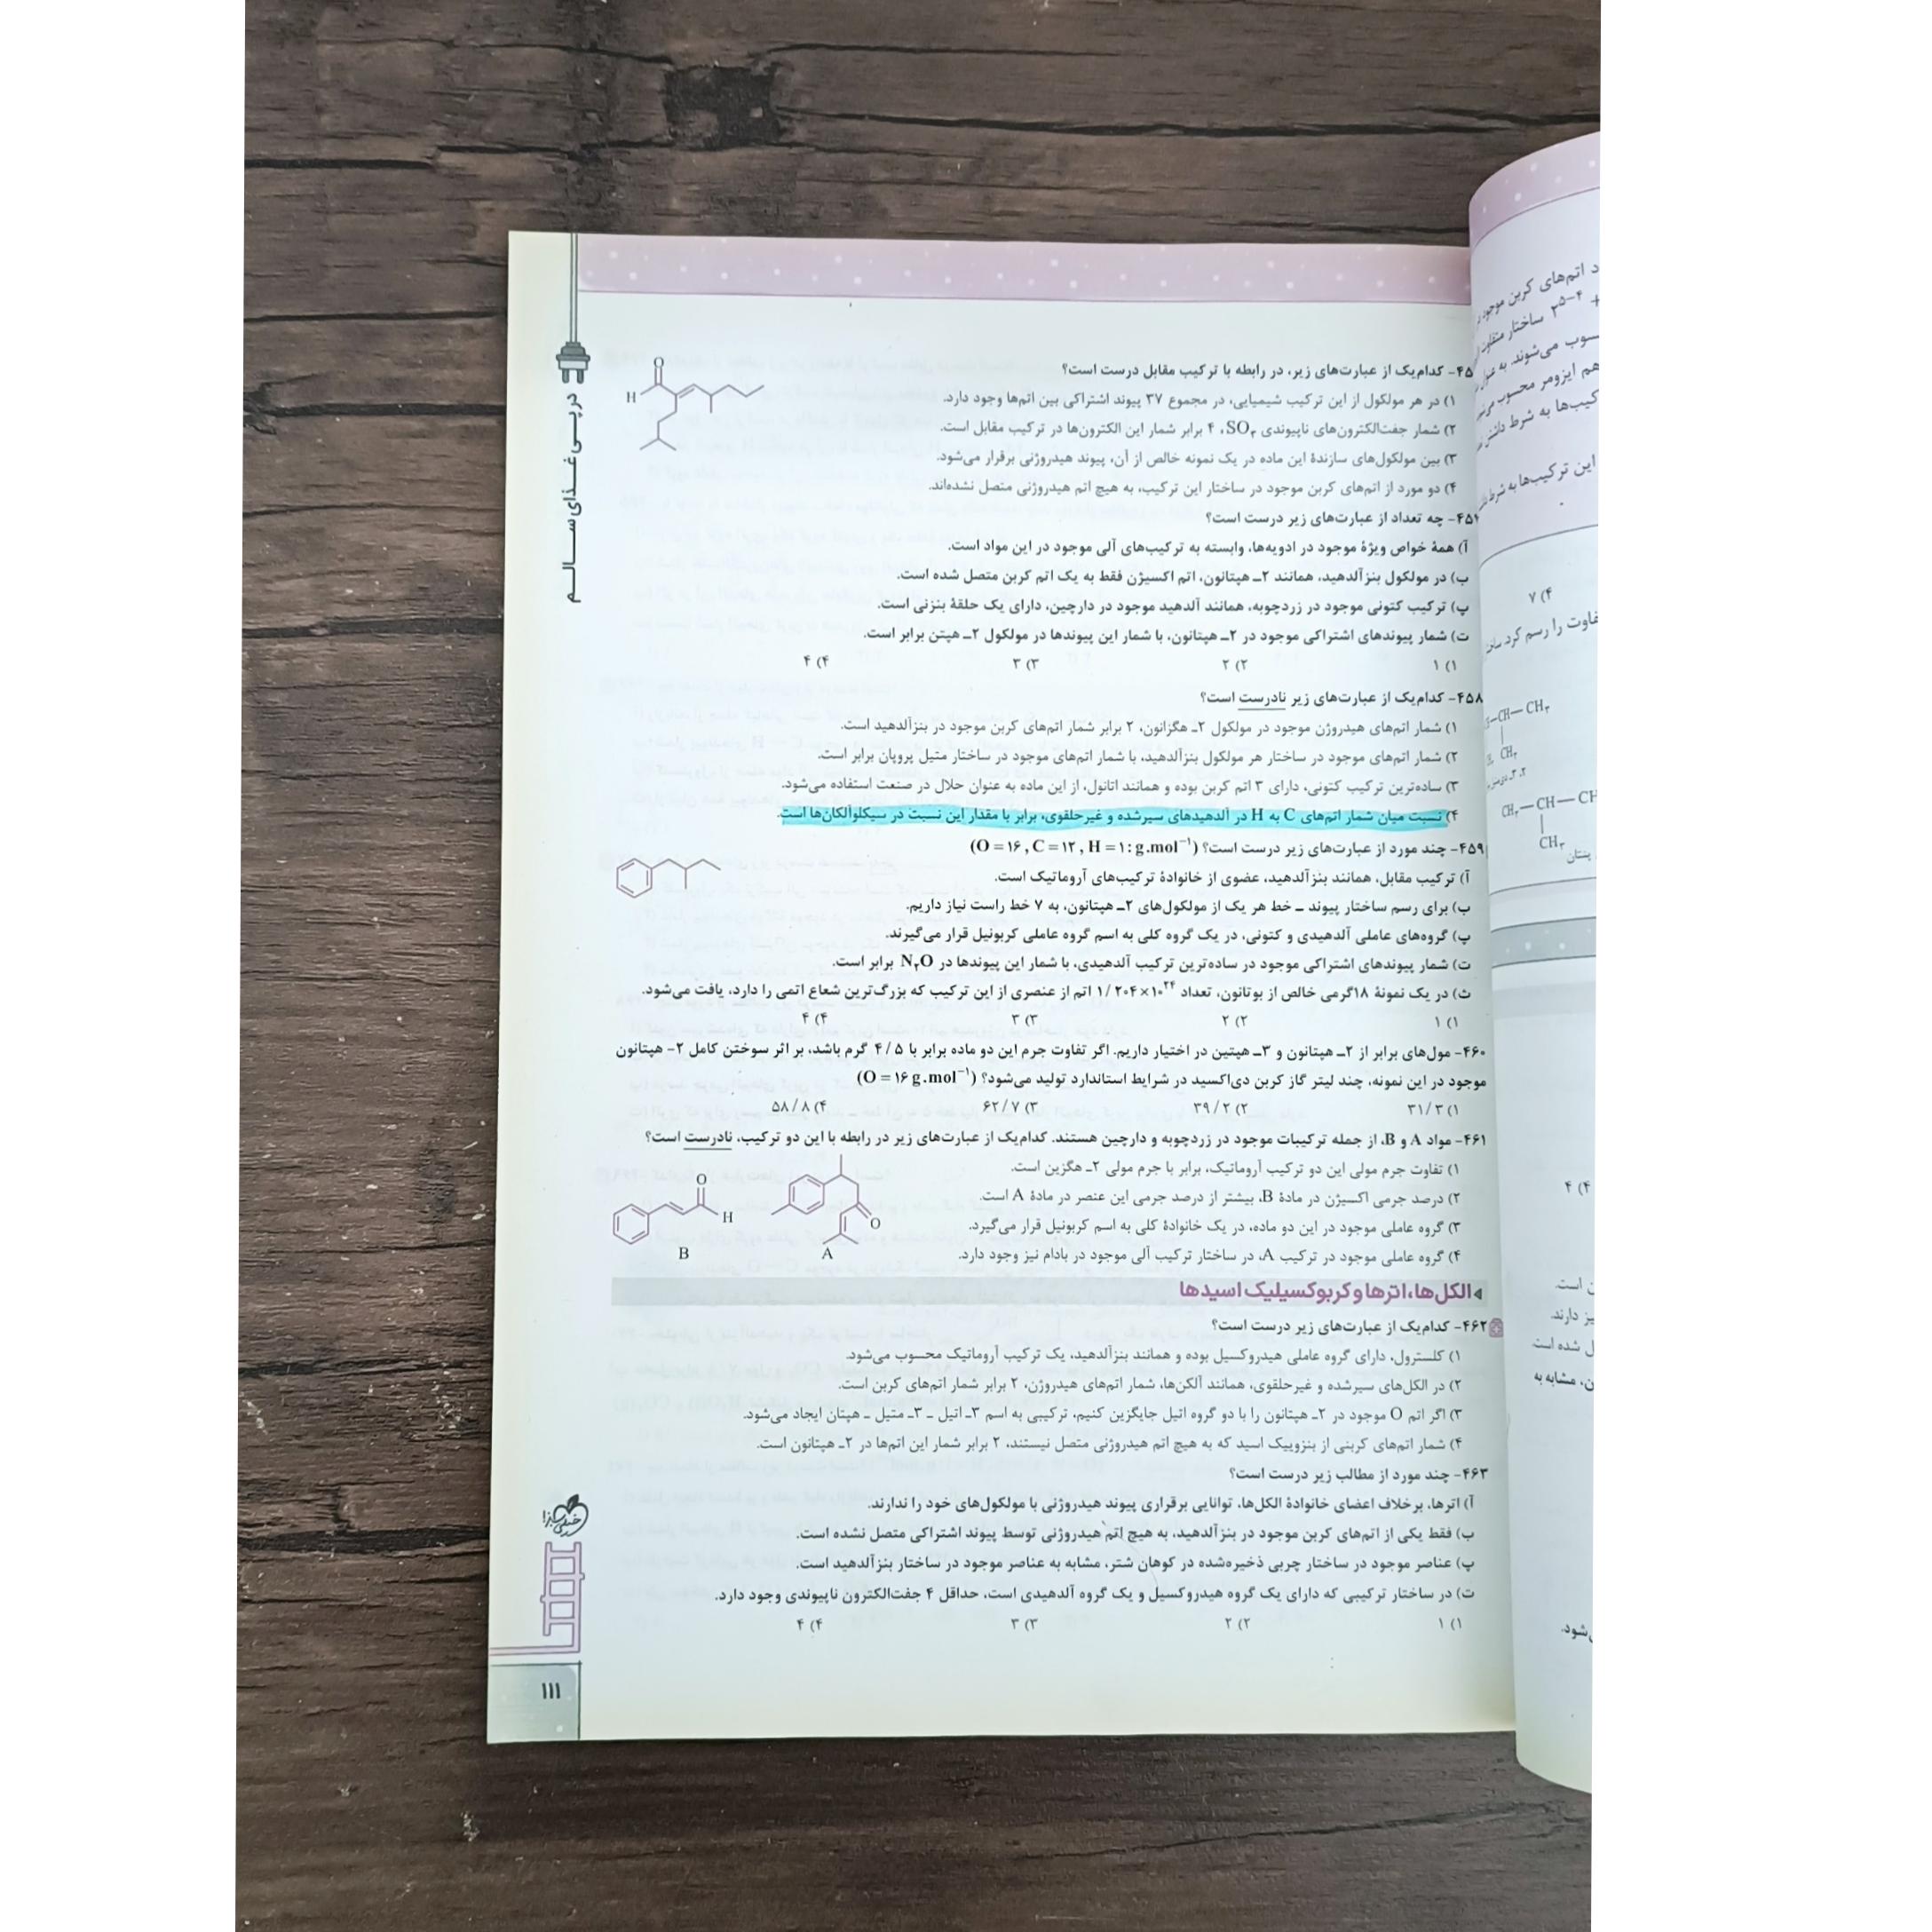 کدام‌یک از عبارت‌های زیر، در رابطه با ترکیب مقابل درست است؟
۱) در هر مولکول از این ترکیب شیمیایی، در مجموع ۳۷ پیوند اشتراکی بین اتم‌ها وجود دارد.
۲) شمار جفت‌الکترون‌های ناپیوندی SO۳، ۴ برابر شمار این الکترون‌ها در ترکیب مقابل است.
۳) بین مولکول‌های سازندهٔ این ماده در یک نمونه خالص از آن، پیوند هیدروژنی برقرار می‌شود.
۴) دو مورد از اتم‌های کربن موجود در ساختار این ترکیب، به هیچ اتم هیدروژنی متصل نشده‌اند.
O
H
چه تعداد از عبارت‌های زیر درست است؟
آ) همهٔ خواص ویژهٔ موجود در ادویه‌ها، وابسته به ترکیب‌های آلی موجود در این مواد است.
ب) در مولکول بنزآلدهید، همانند ۲ـ هپتانون، اتم اکسیژن فقط به یک اتم کربن متصل شده است.
پ) ترکیب کتونی موجود در زردچوبه، همانند آلدهید موجود در دارچین، دارای یک حلقهٔ بنزنی است.
ت) شمار پیوندهای اشتراکی موجود در ۲ـ هپتانون، با شمار این پیوندها در مولکول ۲ـ هپتن برابر است.
۱) ۱ ۲) ۲ ۳) ۳ ۴) ۴
۴۵۸- کدام‌یک از عبارت‌های زیر نادرست است؟
۱) شمار اتم‌های هیدروژن موجود در مولکول ۲ـ هگزانون، ۲ برابر شمار اتم‌های کربن موجود در بنزآلدهید است.
۲) شمار اتم‌های موجود در ساختار هر مولکول بنزآلدهید، با شمار اتم‌های موجود در ساختار متیل پروپان برابر است.
۳) ساده‌ترین ترکیب کتونی، دارای ۳ اتم کربن بوده و همانند اتانول، از این ماده به عنوان حلال در صنعت استفاده می‌شود.
۴) نسبت میان شمار اتم‌های C به H در آلدهیدهای سیرشده و غیرحلقوی، برابر با مقدار این نسبت در سیکلوآلکان‌ها است.
۴۵۹- چند مورد از عبارت‌های زیر درست است؟ (O = ۱۶ , C = ۱۲ , H = ۱ : g.mol⁻¹)
آ) ترکیب مقابل، همانند بنزآلدهید، عضوی از خانوادهٔ ترکیب‌های آروماتیک است.
ب) برای رسم ساختار پیوند ـ خط هر یک از مولکول‌های ۲ـ هپتانون، به ۷ خط راست نیاز داریم.
پ) گروه‌های عاملی آلدهیدی و کتونی، در یک گروه کلی به اسم گروه عاملی کربونیل قرار می‌گیرند.
ت) شمار پیوندهای اشتراکی موجود در ساده‌ترین ترکیب آلدهیدی، با شمار این پیوندها در N۲O برابر است.
ث) در یک نمونهٔ ۱۸گرمی خالص از بوتانون، تعداد ۱/۲۰۴×۱۰²⁴ اتم از عنصری از این ترکیب که بزرگ‌ترین شعاع اتمی را دارد، یافت می‌شود.
۱) ۱ ۲) ۲ ۳) ۳ ۴) ۴
۴۶۰- مول‌های برابر از ۲ـ هپتانون و ۳ـ هپتین در اختیار داریم. اگر تفاوت جرم این دو ماده برابر با ۴/۵ گرم باشد، بر اثر سوختن کامل ۲- هپتانون
موجود در این نمونه، چند لیتر گاز کربن دی‌اکسید در شرایط استاندارد تولید می‌شود؟ (O = ۱۶ g.mol⁻¹)
۱) ۳۱/۳ ۲) ۳۹/۲ ۳) ۶۲/۷ ۴) ۵۸/۸
۴۶۱- مواد A و B، از جمله ترکیبات موجود در زردچوبه و دارچین هستند. کدام‌یک از عبارت‌های زیر در رابطه با این دو ترکیب، نادرست است؟
۱) تفاوت جرم مولی این دو ترکیب آروماتیک، برابر با جرم مولی ۲ـ هگزین است.
۲) درصد جرمی اکسیژن در مادهٔ B، بیشتر از درصد جرمی این عنصر در مادهٔ A است.
۳) گروه عاملی موجود در این دو ماده، در یک خانوادهٔ کلی به اسم کربونیل قرار می‌گیرد.
۴) گروه عاملی موجود در ترکیب A، در ساختار ترکیب آلی موجود در بادام نیز وجود دارد.
O
H
O
B
A
الکل‌ها، اترها و کربوکسیلیک اسیدها
۴۶۲- کدام‌یک از عبارت‌های زیر درست است؟
۱) کلسترول، دارای گروه عاملی هیدروکسیل بوده و همانند بنزآلدهید، یک ترکیب آروماتیک محسوب می‌شود.
۲) در الکل‌های سیرشده و غیرحلقوی، همانند آلکن‌ها، شمار اتم‌های هیدروژن، ۲ برابر شمار اتم‌های کربن است.
۳) اگر اتم O موجود در ۲ـ هپتانون را با دو گروه اتیل جایگزین کنیم، ترکیبی به اسم ۳ـ اتیل ـ ۳ـ متیل ـ هپتان ایجاد می‌شود.
۴) شمار اتم‌های کربنی از بنزوییک اسید که به هیچ اتم هیدروژنی متصل نیستند، ۲ برابر شمار این اتم‌ها در ۲ـ هپتانون است.
۴۶۳- چند مورد از مطالب زیر درست است؟
آ) اترها، برخلاف اعضای خانوادهٔ الکل‌ها، توانایی برقراری پیوند هیدروژنی با مولکول‌های خود را ندارند.
ب) فقط یکی از اتم‌های کربن موجود در بنزآلدهید، به هیچ اتم هیدروژنی توسط پیوند اشتراکی متصل نشده است.
پ) عناصر موجود در ساختار چربی ذخیره‌شده در کوهان شتر، مشابه به عناصر موجود در ساختار بنزآلدهید است.
ت) در ساختار ترکیبی که دارای یک گروه هیدروکسیل و یک گروه آلدهیدی است، حداقل ۴ جفت‌الکترون ناپیوندی وجود دارد.
۱) ۱ ۲) ۲ ۳) ۳ ۴) ۴
در پی غذای سالم
۱۱۱